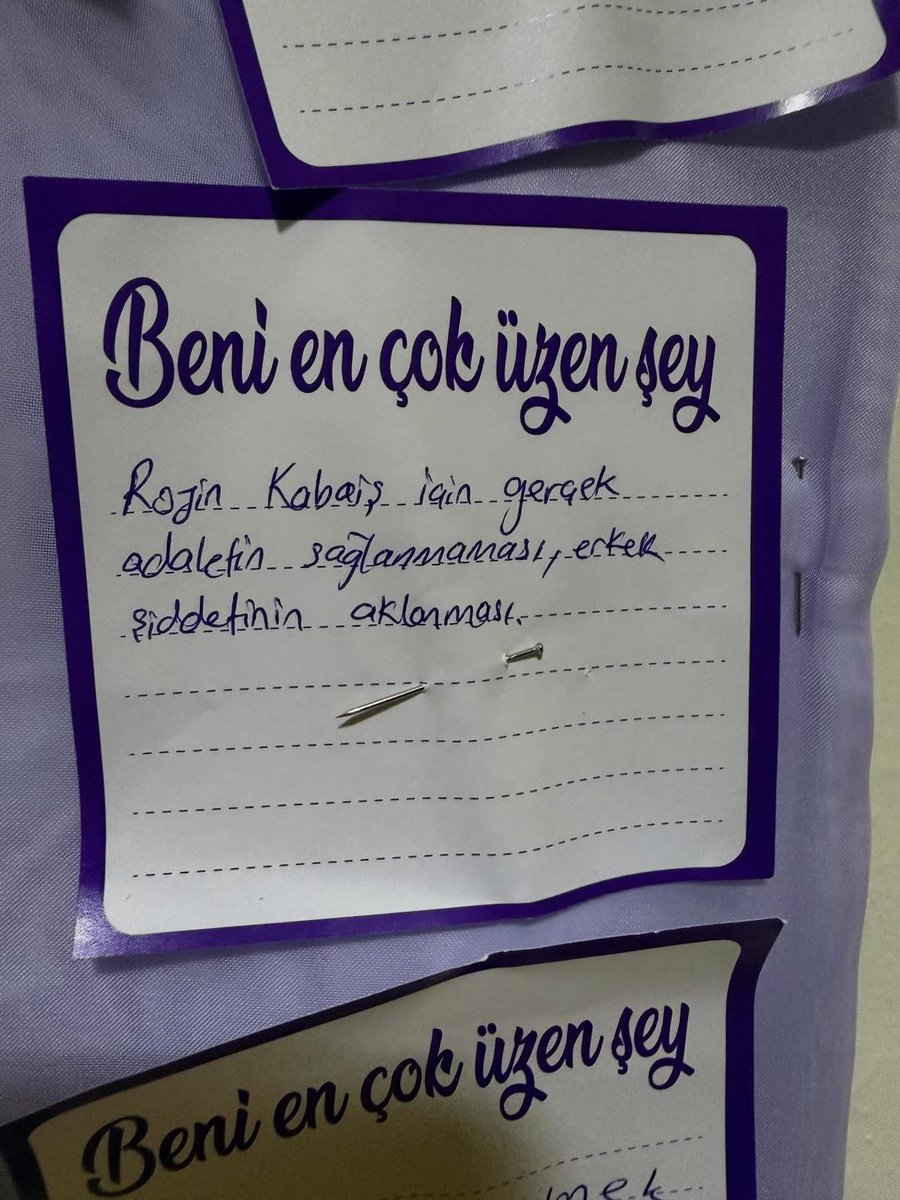 Beni en çok üzen şey
Rojin Kabaiş için gerçek
adaletin sağlanmaması, erkek
şiddetinin aklanması.
Beni en çok üzen şey
mek